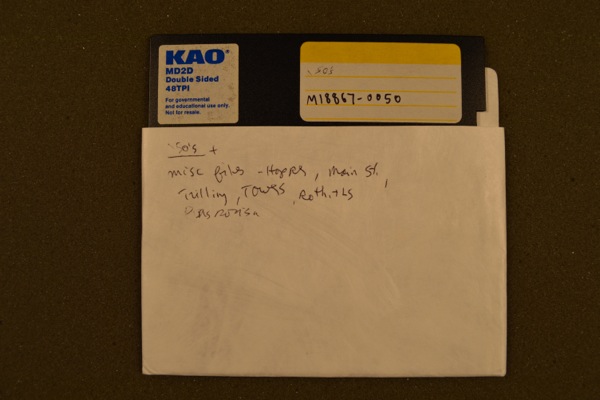 KAO®
MD2D
Double Sided
48TPI
For governmental
and educational use only.
Not for resale.
'50s
M18867-0050
'50's +
misc files - Hopes, Main St.,
Trilling, Towers,